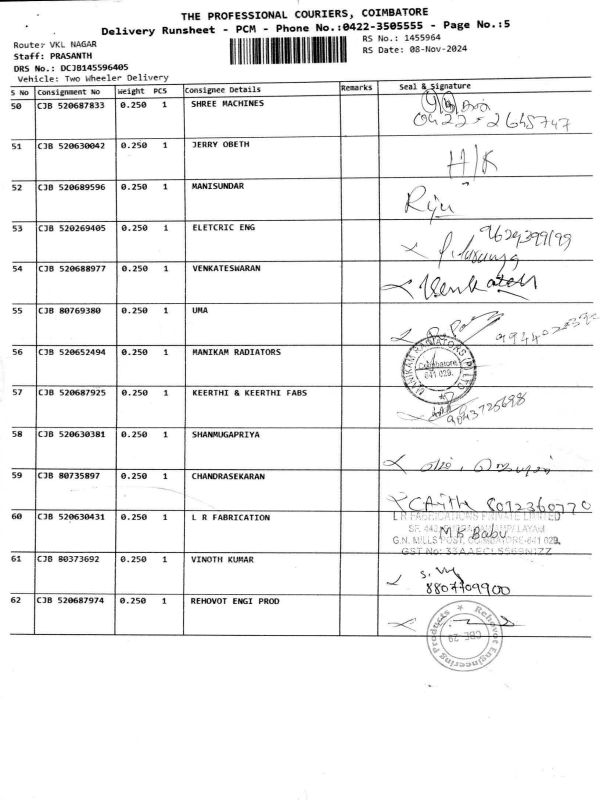 THE PROFESSIONAL COURIERS, COIMBATORE
Delivery Runsheet - PCM - Phone No.:0422-3505555 - Page No.:5
Route: VKL NAGAR
RS No.: 1455964
Staff: PRASANTH
RS Date: 08-Nov-2024
DRS No.: DCJB145596405
Vehicle: Two Wheeler Delivery
S No Consignment No Weight PCS Consignee Details Remarks Seal & Signature
50 CJB 520687833 0.250 1 SHREE MACHINES
0422-2648747
51 CJB 520630042 0.250 1 JERRY OBETH
H/K
52 CJB 520689596 0.250 1 MANISUNDAR
Riju
53 CJB 520269405 0.250 1 ELETCRIC ENG
9629399199
54 CJB 520688977 0.250 1 VENKATESWARAN
Venkatesh
55 CJB 80769380 0.250 1 UMA
56 CJB 520652494 0.250 1 MANIKAM RADIATORS
MANIKAM RADIATORS (P) LTD
Coimbatore
641 029.
57 CJB 520687925 0.250 1 KEERTHI & KEERTHI FABS
9843725698
58 CJB 520630381 0.250 1 SHANMUGAPRIYA
59 CJB 80735897 0.250 1 CHANDRASEKARAN
8072360770
60 CJB 520630431 0.250 1 L R FABRICATION
L R FABRICATIONS PRIVATE LIMITED
SF. 443
M B Babu
G.N. MILLS POST, COIMBATORE-641 029.
GST No: 33AAECL5569N1ZZ
61 CJB 80373692 0.250 1 VINOTH KUMAR
8807709900
62 CJB 520687974 0.250 1 REHOVOT ENGI PROD
Rehovot Engineering Products
CBE 29